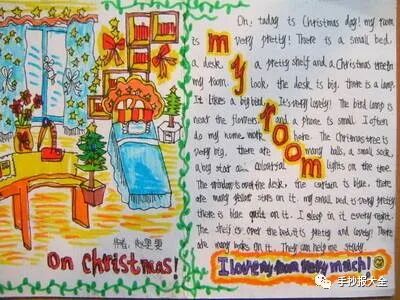 Oh, today is Christmas day! my room
is very pretty! There is a small bed,
a desk, a pretty shelf and a Christmas tree in
my room. look, the desk is big, there is a lamp.
It likes a big bird. It's very lovely! The bird lamp is
near the flowers and a phone is small. I often
do my home work here. The Christmas tree is
very big, there are many balls, a small sock,
a big star and colourful lights on the tree.
The window is over the desk. The curtain is blue. there
are many yellow stars on it. my small bed is very pretty
there is blue quilt on it. I sleep in it every night.
The shelf is over the bed, it is pretty and lovely! There
are many books on it. They can help me study.
my room
I love my room very much!
作者:
On Christmas!
手抄报大全